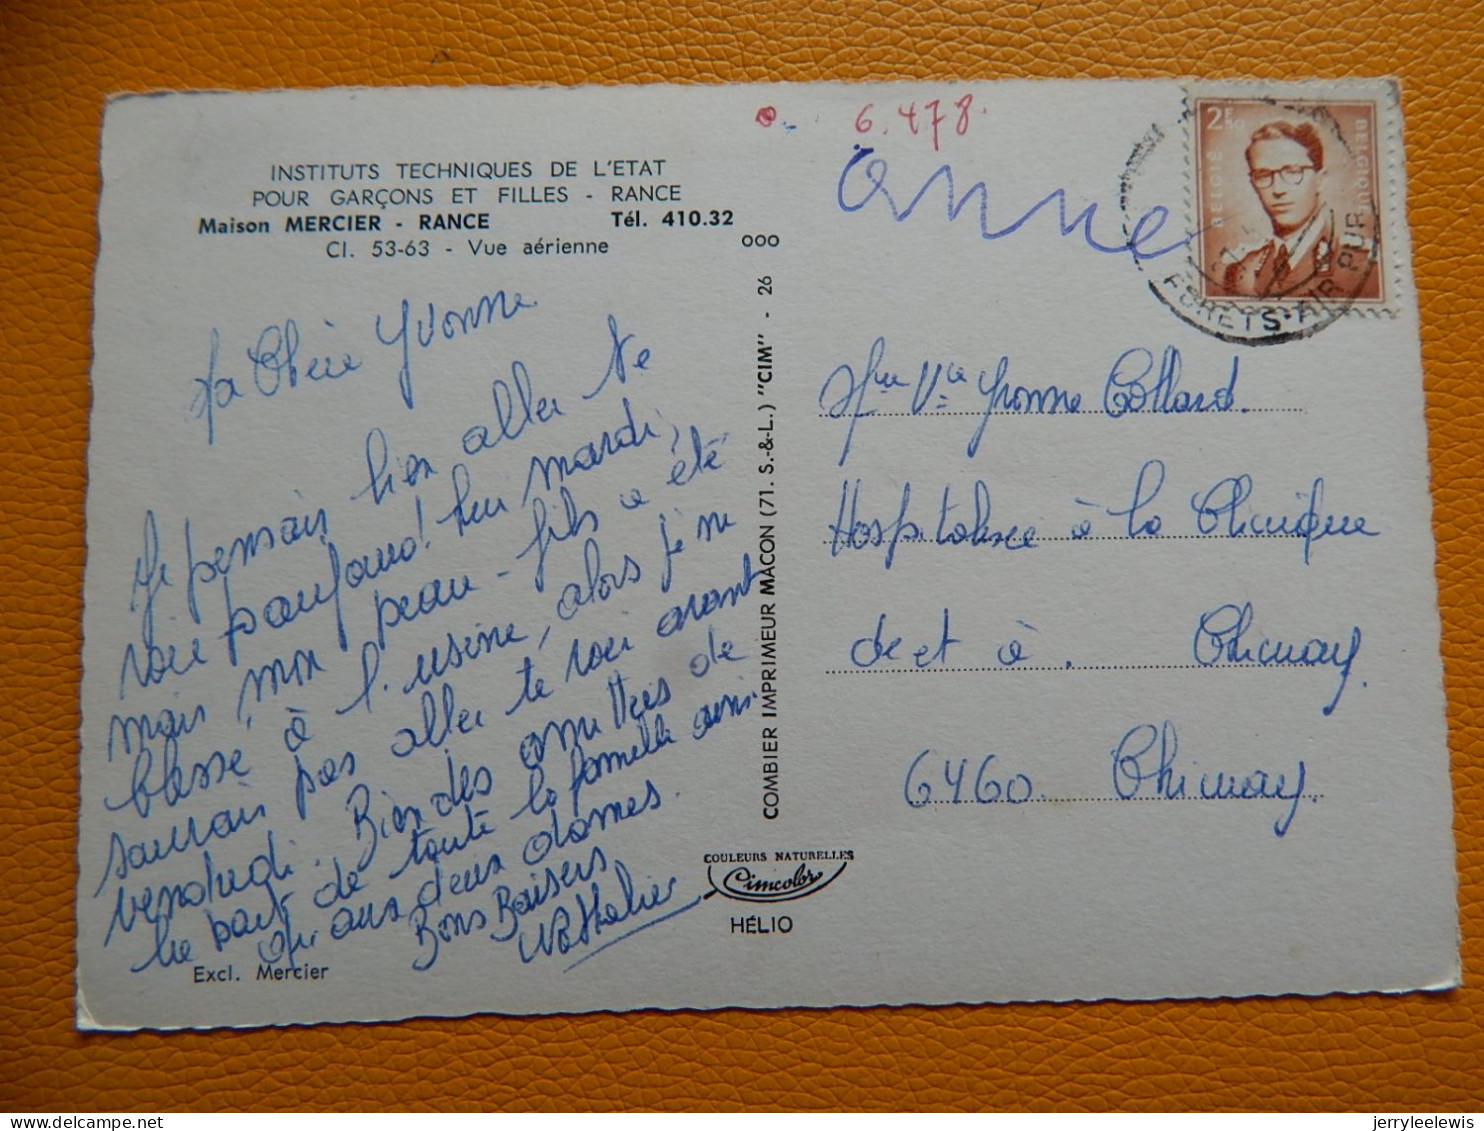 INSTITUTS TECHNIQUES DE L'ETAT
POUR GARÇONS ET FILLES - RANCE
Maison MERCIER - RANCE Tél. 410.32
Cl. 53-63 - Vue aérienne
Chère Yvonne
Je pensais bien aller te
voir mardi,
mais, mon beau-fils a été
blessé à l'usine, alors je ne
saurais pas aller te voir avant
vendredi. Bien des amitiés de
la part de toute la famille ainsi
qu'aux deux dames.
Bons Baisers
Nathalie
Excl. Mercier
ooo
COMBIER IMPRIMEUR MACON (71. S.-&-L.) "CIM" - 26
COULEURS NATURELLES
Cimcolor
HÉLIO
6.478.
anne
2F50
BELGIË BELGIQUE
FORETS-AIR PUR
Mme Vve Yvonne Collard.
Hospitalisée à la Clinique
de et à. Chimay.
6460. Chimay.
jerryleelewis